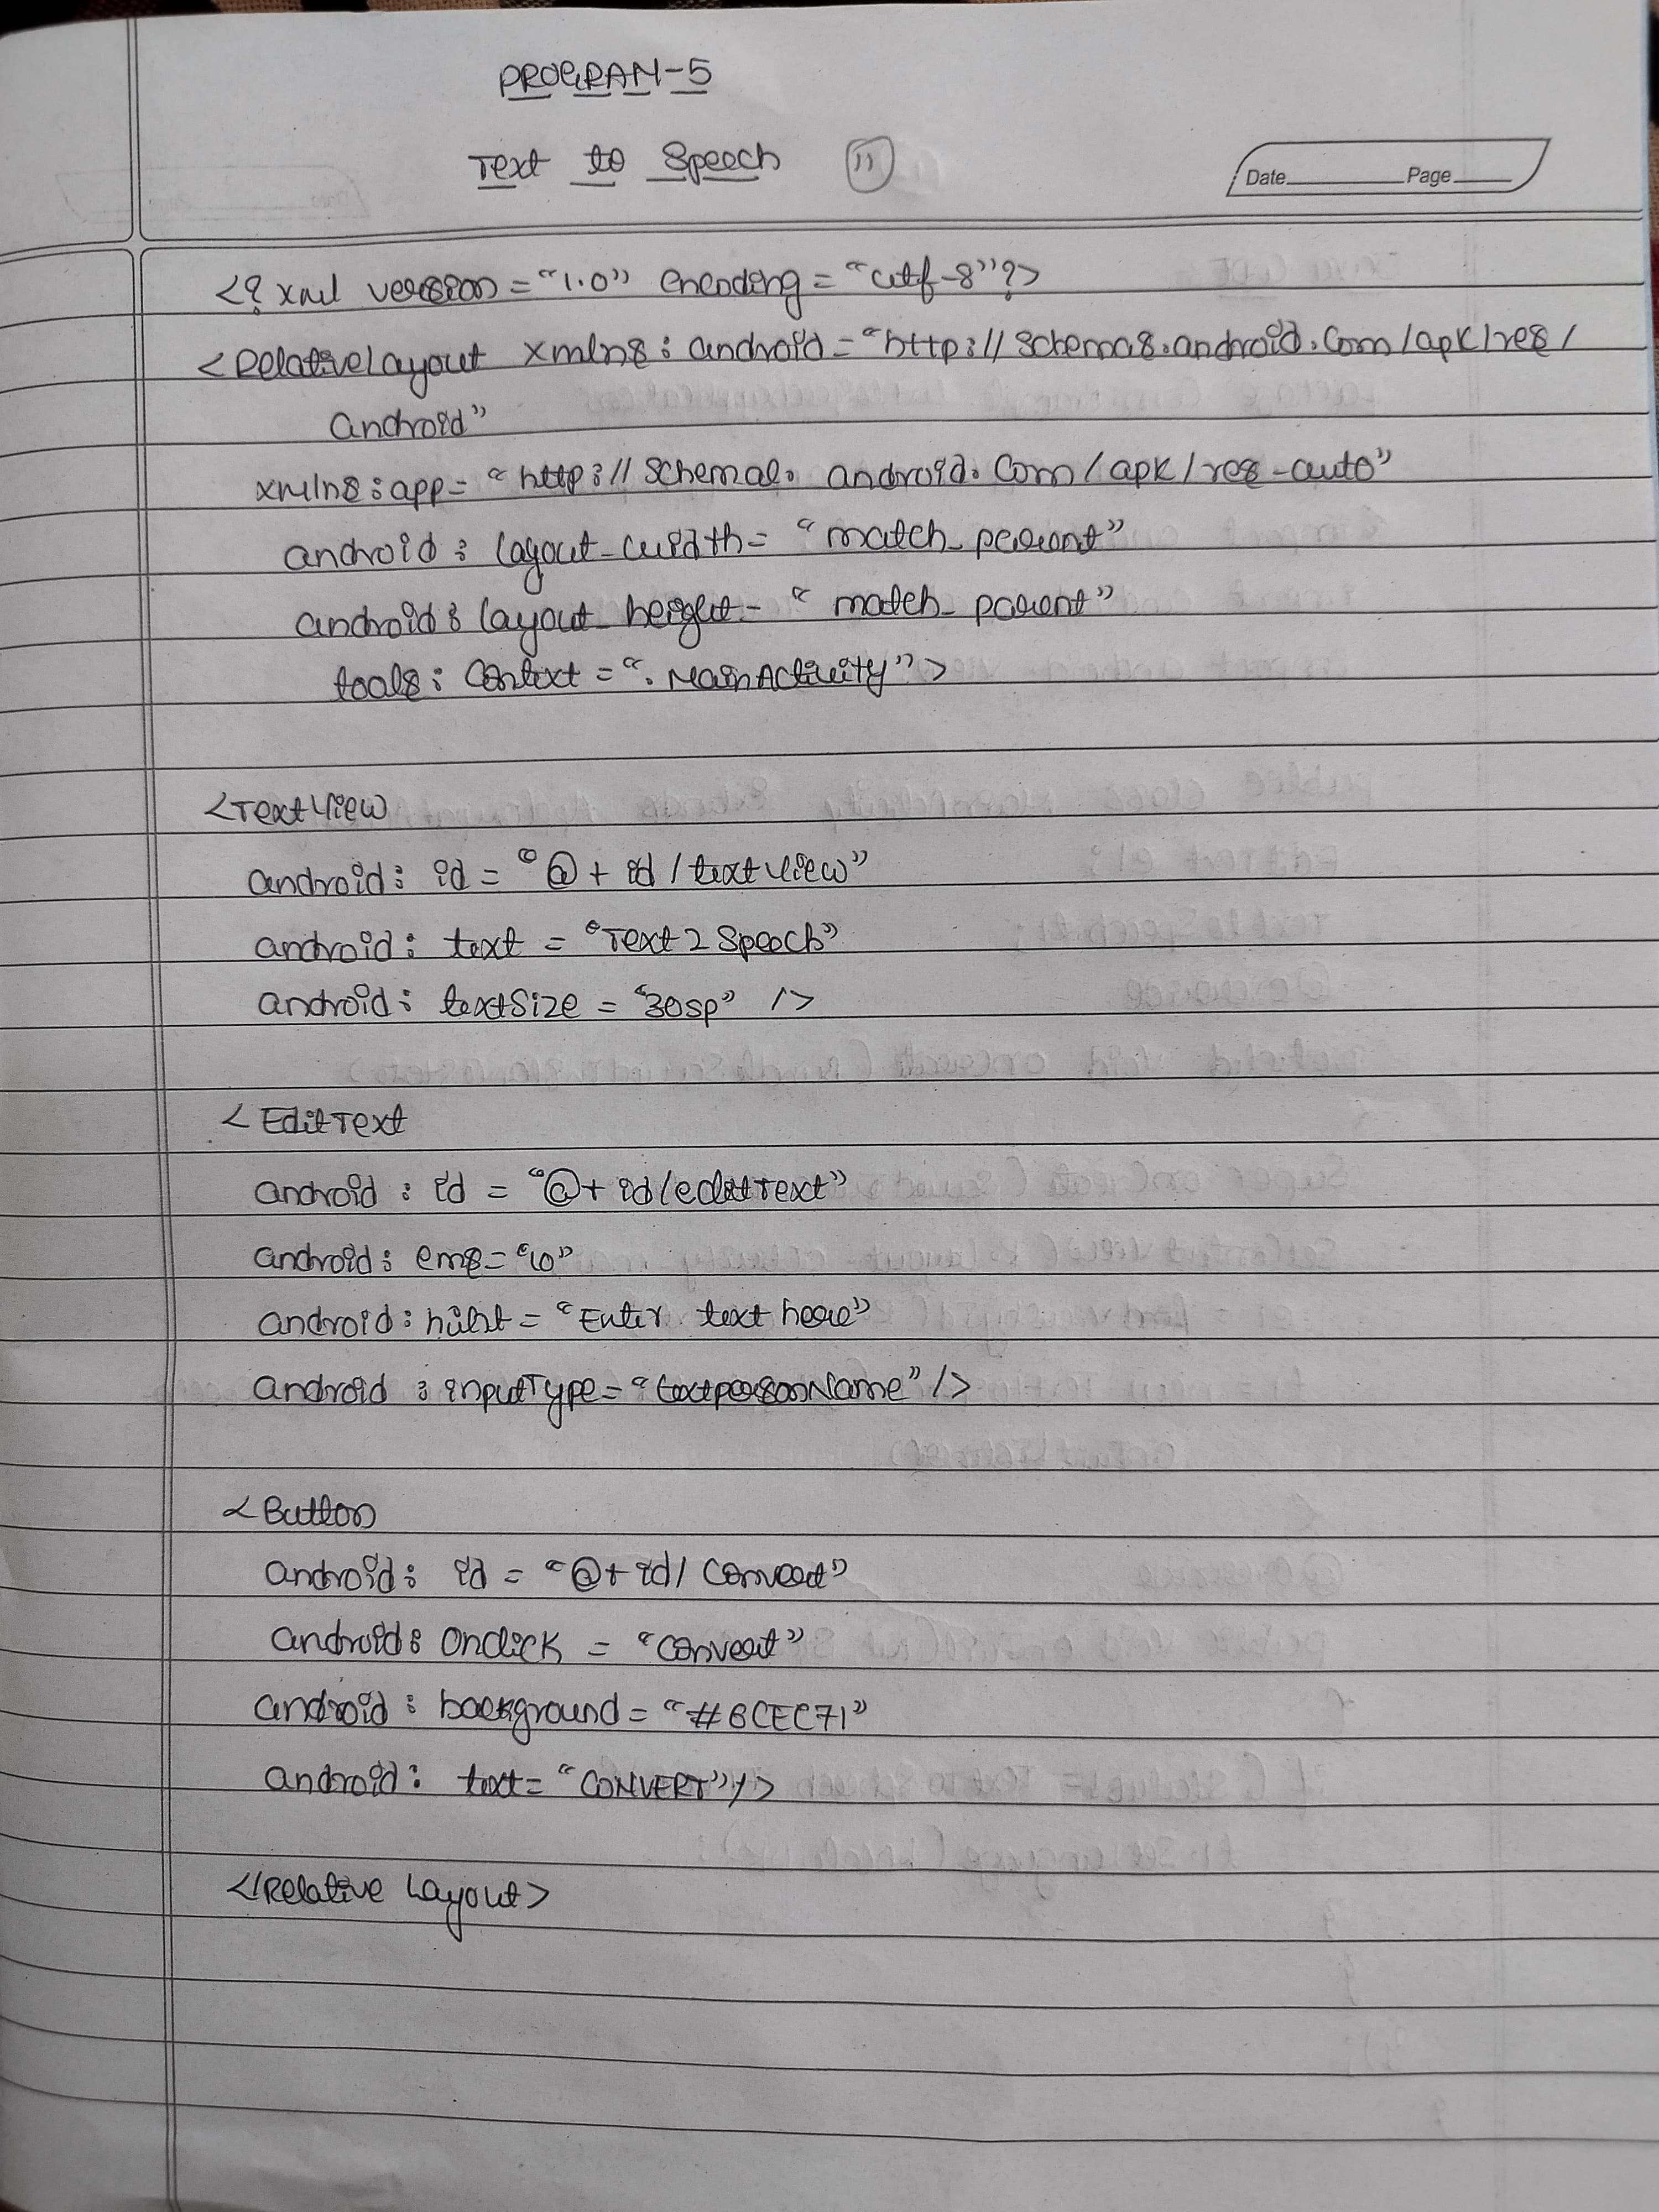 PROGRAM-5
Text to Speech 11
Date Page
<?xml version = "1.0" encoding = "utf-8"?>
<RelativeLayout xmlns: android = "http://schemas.android.com/apk/res/
android"
xmlns:app= "http://schemal. android.com/apk/res-auto"
android: layout_width= "match_parent"
android: layout_height= "match_parent"
tools: Context = ".MainActivity">
<TextView
android: id = "@+ id / textView"
android: text = "Text2 Speech"
android: textSize = "30sp" />
<EditText
android: id = "@+ id/editText"
android: ems= "10"
android: hint = "Enter text here"
android: inputType= "textpersonName" />
<Button
android: id = "@+ id/ convert"
android: Onclick = "convert"
android: background = "#6CEC71"
android: text= "CONVERT"/>
</Relative Layout>